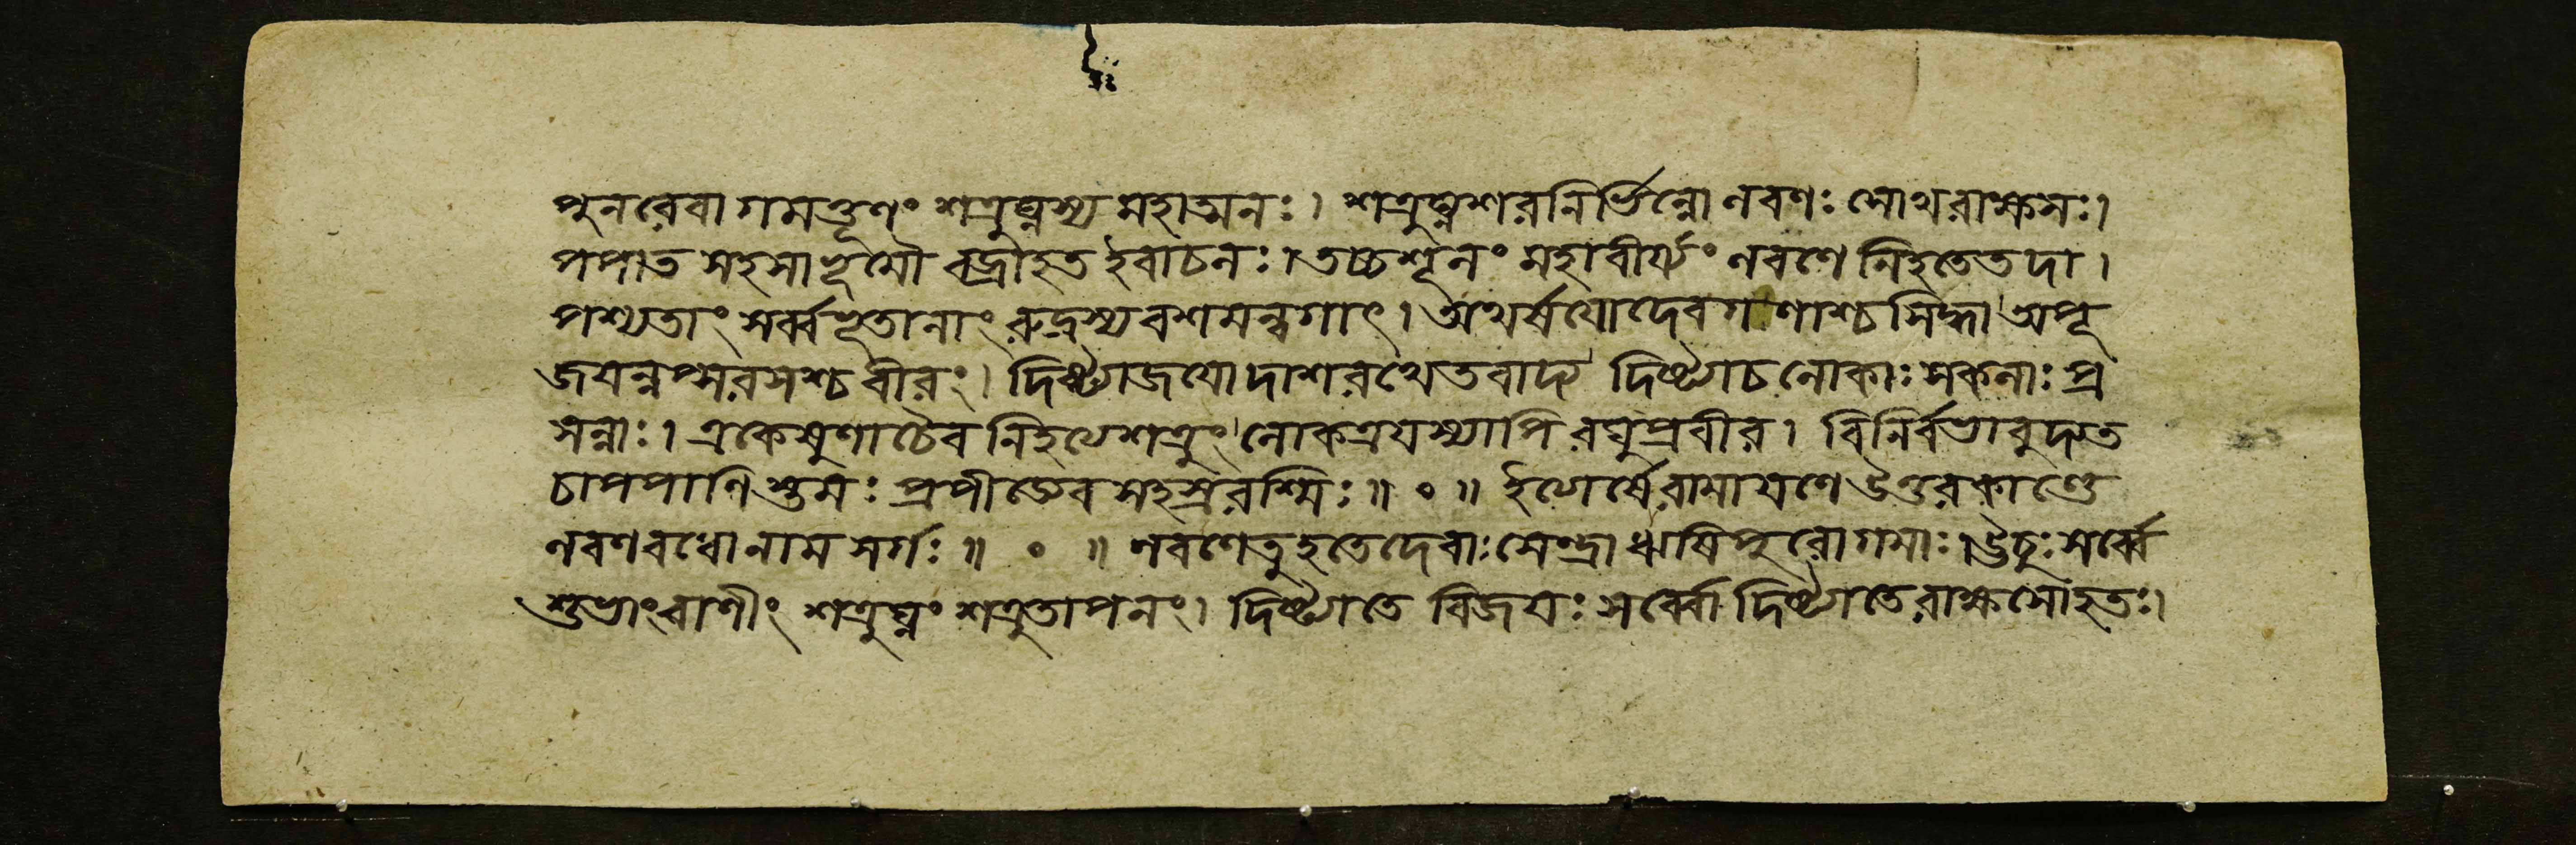 পুনরেবাগমত্তূণং শত্রুঘ্নস্য মহাত্মনঃ। শত্রুঘ্নশরনির্ভিন্নো লবণঃ সোথ রাক্ষসঃ।
পপাত সহসা ভূমৌ বজ্রাহত ইবাচলঃ। তচ্চশূলং মহাবীর্য্যং লবণে নিহতেতদা।
পশ্যতাং সর্ব্বভূতানাং রুদ্রস্যবশমন্বগাৎ। অথর্ষয়োদেবগণাশ্চ সিদ্ধা অপূ
জয়ন্নপ্সরসশ্চ বীরং। দিষ্ট্যাজয়োদাশরথেতবাদ্য দিষ্ট্যাচ লোকাঃ সকলাঃ প্র
সন্নাঃ। একেষুণাচৈব নিহত্যেশত্রুং লোকত্রয়স্যাপি রঘুপ্রবীর। বিনির্বভাবুদ্যত
চাপপাণিস্তমঃ প্রপীড্যেব সহস্ররশ্মিঃ॥ ॰ ॥ ইত্যের্ষেরামায়ণে উত্তরকাণ্ডে
লবণবধোনাম সর্গঃ॥ ॰ ॥ লবণেতুহতেদেবাঃ সেন্দ্রা ঋষিপুরোগমাঃ। উচুঃ সর্ব্বে
শুভাংবাণীং শত্রুঘ্নং শত্রুতাপনং। দিষ্ট্যাতে বিজয়ঃ সর্ব্বো দিষ্ট্যাতেরাক্ষসোহতঃ।